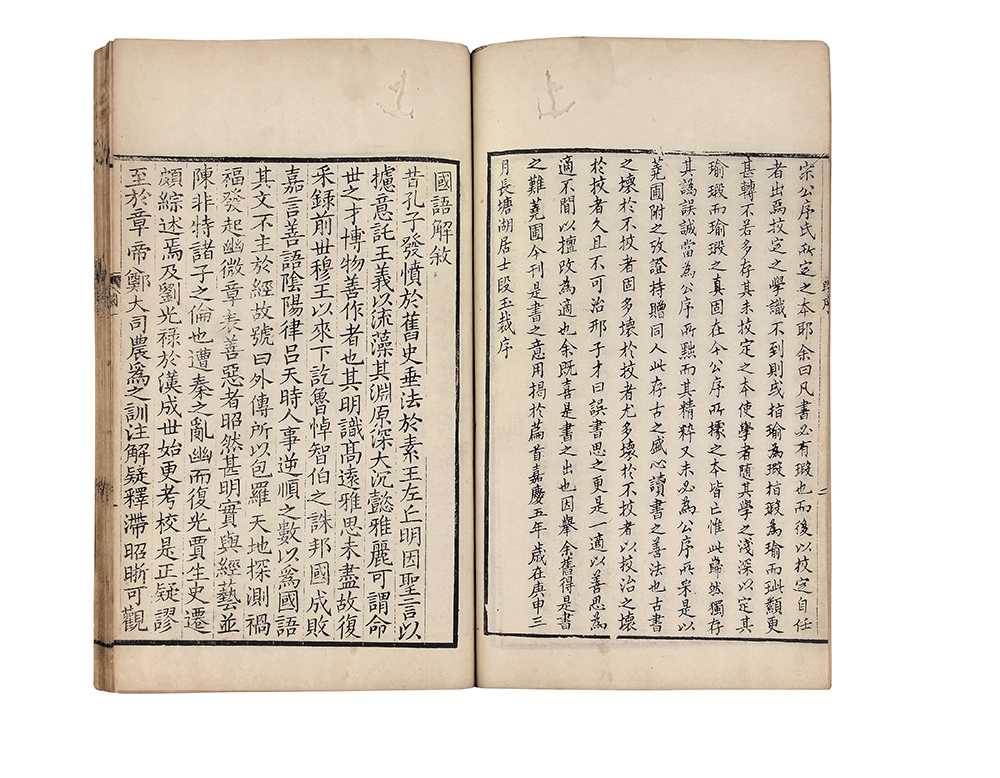 宋公序氏所定之本耶余曰凡書必有瑕也而後以挍定自任
者出焉挍定之學識不到則或指瑜為瑕指瑕為瑜而玼纇更
甚轉不若多存其未挍定之本使學者隨其學之淺深以定其
瑜瑕而瑜瑕之真固在今公序所據之本皆亡惟此巋然獨存
其譌誤誠當為公序所黜而其精粹又未必為公序所采是以
蕘圃附之攷證持贈同人此存古之盛心讀書之善法也古書
之壞於不挍者固多壞於挍者尤多壞於不挍者以挍治之壞
於挍者久且不可治邢子才曰誤書思之更是一適以善思為
適不聞以擅改為適也余既喜是書之出也因舉余舊得是書
之難蕘圃今刊是書之意用揭於篇首嘉慶五年歲在庚申三
月長塘湖居士段玉裁序
國語解敘
昔孔子發憤於舊史垂法於素王左丘明因聖言以
攄意託王義以流藻其淵原深大沉懿雅麗可謂命
世之才博物善作者也其明識高遠雅思未盡故復
采錄前世穆王以來下訖魯悼智伯之誅邦國成敗
嘉言善語陰陽律呂天時人事逆順之數以為國語
其文不主於經故號曰外傳所以包羅天地探測禍
福發起幽微章表善惡者昭然甚明實與經藝並
陳非特諸子之倫也遭秦之亂幽而復光賈生史遷
頗綜述焉及劉光祿於漢成世始更考校是正疑謬
至於章帝鄭大司農為之訓注解疑釋滯昭晣可觀